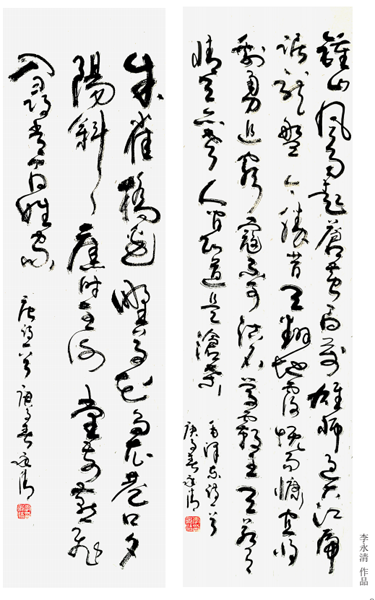 鍾山风雨起蒼黄百万雄師过大江虎
踞龙盤今勝昔天翻地覆慨而慷宜将
剩勇追窮寇不可沽名學霸王天若有
情天亦老人间正道是滄桑
毛泽东诗一首
庚子春永清
朱雀橋边野草花乌衣巷口夕
陽斜舊时王谢堂前燕飛
入尋常百姓家
唐诗一首 庚子春永清
李永清 作品